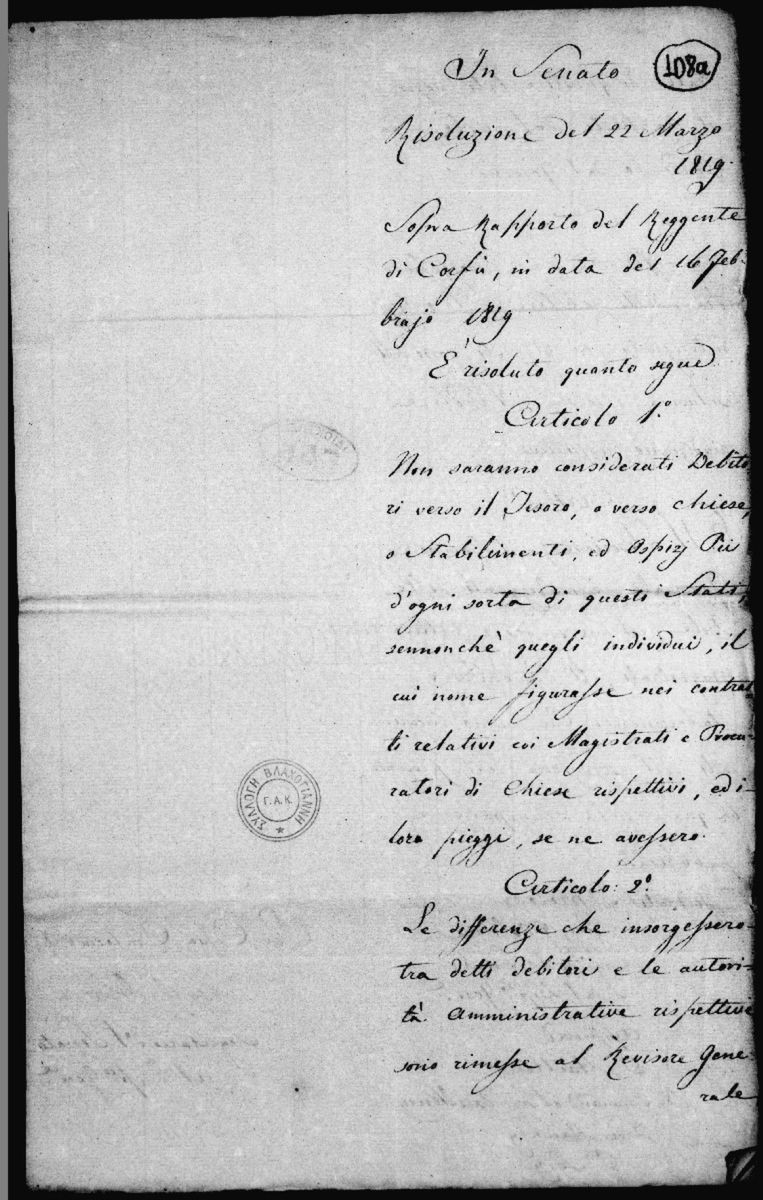 In Senato
108a
Risoluzione del 22 Marzo
1819.
Sopra Rapporto del Reggente
di Corfù, in data del 16 Feb-
brajo 1819
È risoluto quanto segue
Articolo 1.º
Non saranno considerati Debito
ri verso il Tesoro, o verso Chiese,
o Stabilimenti, ed Ospizj Pii
d'ogni sorta di questi Stati,
sennonchè quegli individui, il
cui nome figurasse nei contrat
ti relativi coi Magistrati e Procu-
ratori di Chiese rispettivi, ed i
loro pieggi, se ne avessero.
Articolo: 2º.
Le differenze che insorgessero
tra detti debitori e le autori-
tà Amministrative rispettive
sono rimesse al Revisore Gene
rale
ΣΥΛΛΟΓΗ ΒΛΑΧΟΓΙΑΝΝΗ
Γ.Α.Κ.